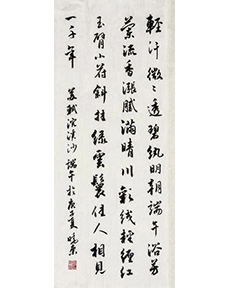 輕汗微々透碧紈明朝端午浴芳
蘭流香漲膩滿晴川彩线輕纏红
玉臂小符斜挂綠雲鬟佳人相見
一千年 苏轼浣溪沙端午於夏